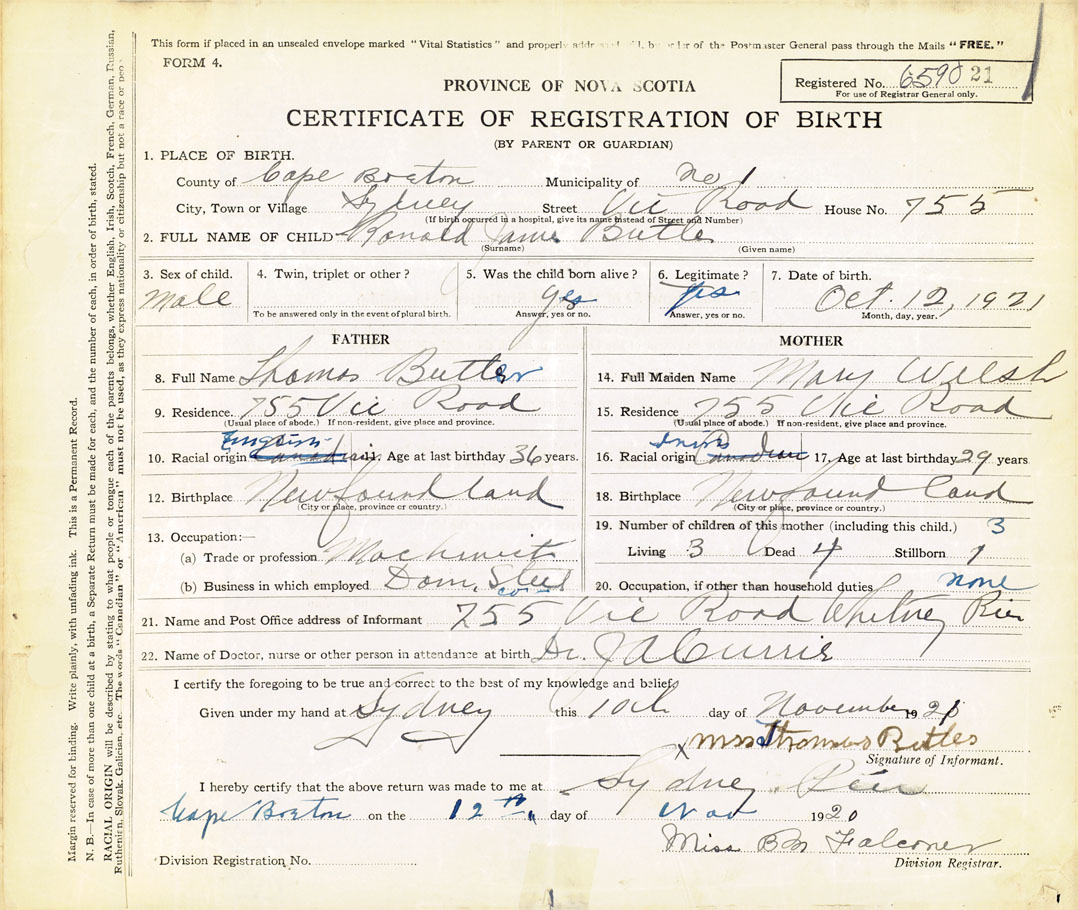 This form if placed in an unsealed envelope marked "Vital Statistics" and properly addressed will, by order of the Postmaster General pass through the Mails "FREE."
FORM 4.
PROVINCE OF NOVA SCOTIA
Registered No. 6590 21
For use of Registrar General only.
CERTIFICATE OF REGISTRATION OF BIRTH
(BY PARENT OR GUARDIAN)
1. PLACE OF BIRTH.
County of Cape Breton Municipality of No 1
City, Town or Village Sydney Street Vic Road House No. 755
(If birth occurred in a hospital, give its name instead of Street and Number)
2. FULL NAME OF CHILD Ronald James Butler
(Surname) (Given name)
3. Sex of child. 4. Twin, triplet or other? 5. Was the child born alive? 6. Legitimate? 7. Date of birth.
Male yes yes Oct. 12, 1921
To be answered only in the event of plural birth. Answer, yes or no. Answer, yes or no. Month, day, year.
FATHER MOTHER
8. Full Name Thomas Butler 14. Full Maiden Name Mary Walsh
9. Residence. 755 Vic Road 15. Residence 755 Vic Road
(Usual place of abode.) If non-resident, give place and province. (Usual place of abode.) If non-resident, give place and province.
10. Racial origin Canadian 11. Age at last birthday 36 years. 16. Racial origin Irish Canadian 17. Age at last birthday 29 years
12. Birthplace Newfoundland 18. Birthplace Newfoundland
(City or place, province or country.) (City or place, province or country.)
13. Occupation:— 19. Number of children of this mother (including this child.) 3
(a) Trade or profession Living 3 Dead 4 Stillborn 1
(b) Business in which employed Dom. Steel Co 20. Occupation, if other than household duties none
21. Name and Post Office address of Informant 755 Vic Road Whitney Pier
22. Name of Doctor, nurse or other person in attendance at birth Dr. J A Currie
I certify the foregoing to be true and correct to the best of my knowledge and belief.
Given under my hand at Sydney this 10th day of November 1921
x Mrs Thomas Butler
Signature of Informant.
I hereby certify that the above return was made to me at Sydney Pier
Cape Breton on the 12th day of Nov 1920
Miss B M Falconer
Division Registration No. Division Registrar.
Margin reserved for binding. Write plainly, with unfading ink. This is a Permanent Record.
N. B.—In case of more than one child at a birth, a Separate Return must be made for each, and the number of each, in order of birth, stated.
RACIAL ORIGIN will be described by stating to what people or tongue each of the parents belongs, whether English, Irish, Scotch, French, German, Russian,
Ruthenian, Slovak, Galician, etc. The words "Canadian" or "American" must not be used, as they express nationality or citizenship but not a race or people.